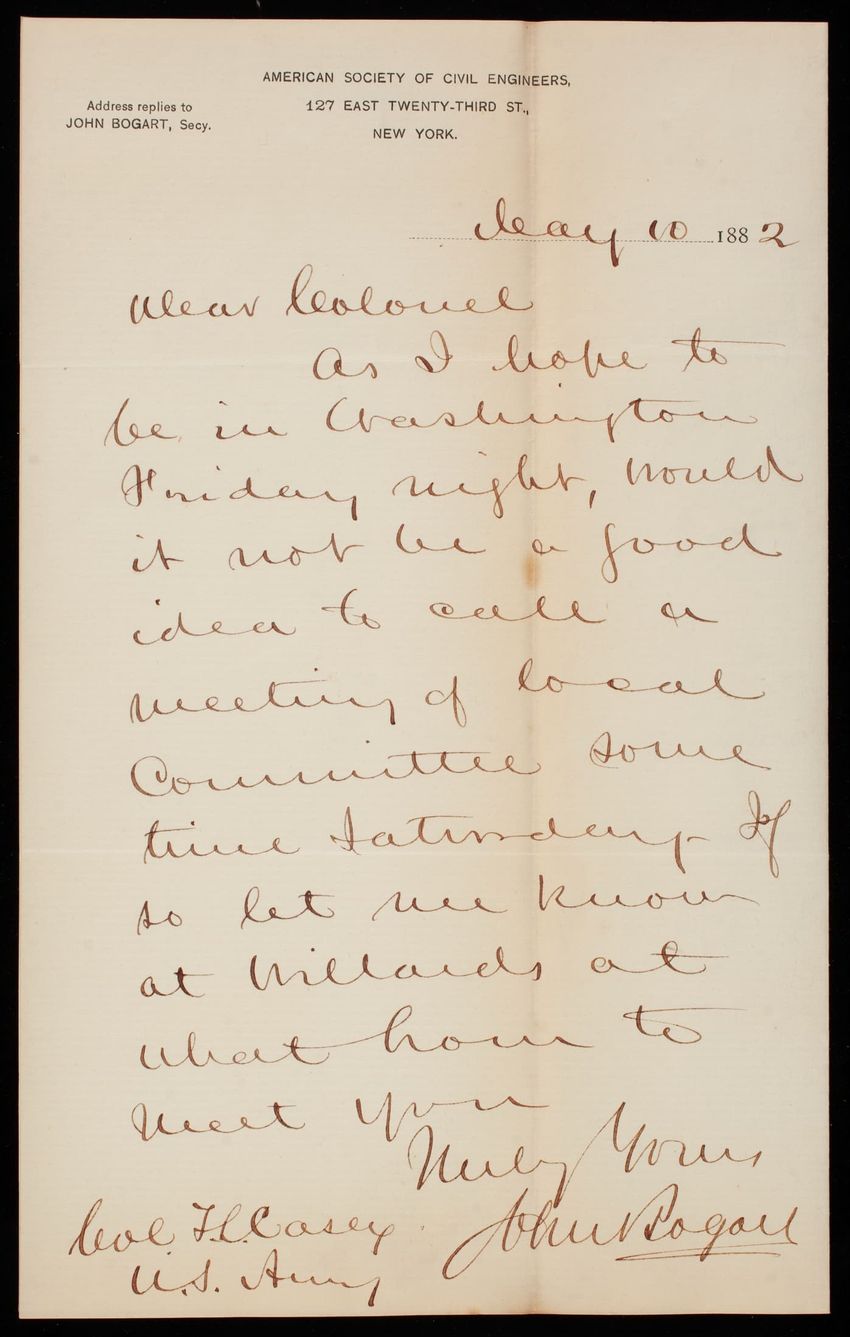 AMERICAN SOCIETY OF CIVIL ENGINEERS,
127 EAST TWENTY-THIRD ST.,
NEW YORK.
Address replies to
JOHN BOGART, Secy.
May 10 1882
Dear Colonel
As I hope to
be in Washington
Friday night, would
it not be a good
idea to call a
meeting of local
Committee some
time Saturday. If
so let me know
at Willards at
what hour to
meet you
Truly Yours
John Bogart
Col T.L. Casey
U.S. Army